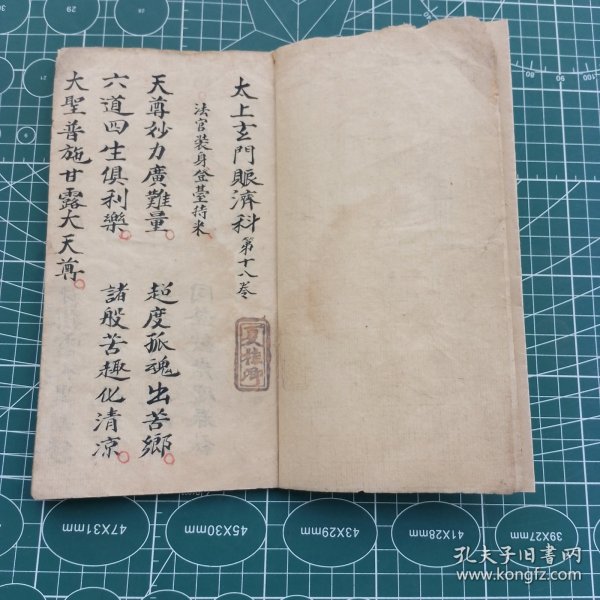 太上玄門賑濟科第十八卷
夏桂卿
法官裝身登臺持米
天尊妙力廣難量 超度孤魂出苦鄉
六道四生俱利樂 諸般苦趣化清凉
大聖普施甘露大天尊
47X31mm
45X30mm
43X29mm
41X28mm
39X27mm
孔夫子旧书网
www.kongfz.com